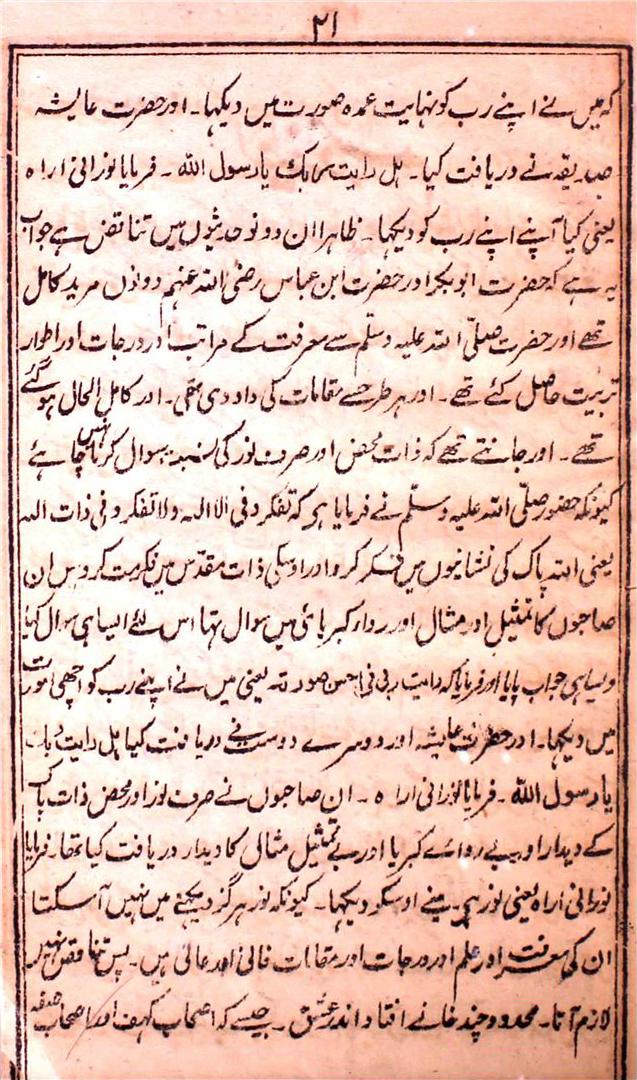 ۲۱
کہ میں نے اپنے رب کو نہایت عمدہ صورت میں دیکہا۔ اور حضرت عایشہ
صدیقہ نے دریافت کیا۔ ہل رایت ربک یا رسول اللہ۔ فرمایا نورانی اراہ
یعنی کیا آپنے اپنے رب کو دیکہا۔ ظاہرا ان دونو حدیثوں میں تناقض ہے جواب
یہ ہے کہ حضرت ابوبکر اور حضرت ابن عباس رضی اللہ عنہم دونوں مرید کامل
تھے اور حضرت صلّی اللہ علیہ وسلّم سے معرفت کے مراتب اور درجات اور اطوار
تربیت حاصل کئے تھے۔ اور ہر طرحسے مقامات کی داد دی تھی۔ اور کامل الحال ہو گئے
تھے۔ اور جانتے تھے کہ ذات محض اور صرف نور کی سوال کرنا نہیں چاہئے
کیونکہ حضور صلّی اللہ علیہ وسلّم نے فرمایا ہے کہ تفکرو فی الا اللہ ولا تفکرو فی ذات اللہ
یعنی اللہ پاک کی نشانیوں میں فکر کرو اور اوسکی ذات مقدّس میں فکر مت کرو پس ان
صاحبوں کا تمثیل اور مثال اور رداء کبریائی میں سوال تہا اس لئے ایسا ہی سوال کیا
ویسا ہی جواب پایا اور فرمایا کہ رایت ربی فی احسن صورتہ یعنی میں نے اپنے رب کو اچھی صورت
میں دیکہا۔ اور حضرت عایشہ اور دوسرے دوست نے دریافت کیا ہل رایت ربک
یا رسول اللہ۔ فرمایا نورانی اراہ۔ ان صاحبوں نے صرف نور اور محض ذات پاک
کے دیدار اور بے رواے کبریا اور بے تمثیل مثال کا دیدار دریافت کیا تھا۔ فرمایا
نورانی اراہ یعنی نور ہے۔ مینے اوسکو دیکہا۔ کیونکہ نور ہرگز دیکہنے میں نہیں آسکتا
ان کی معرفت اور علم اور درجات اور مقامات عالی ہیں۔ پس تناقض نہیں
لازم آتا۔ محدود چند غانے افتاد اندر عشق۔ جیسے کہ اصحاب کہف اور اصحاب صفہ